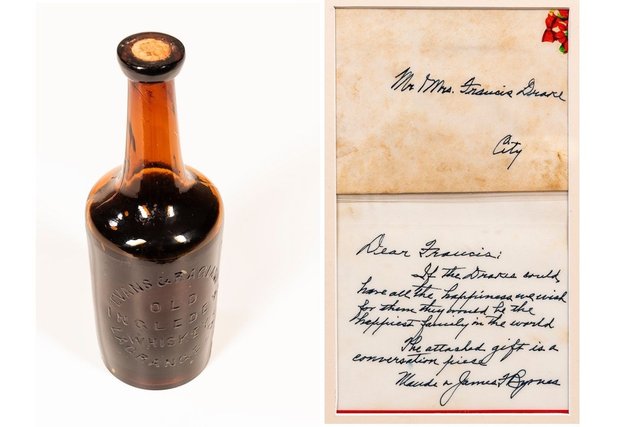 EVANS & RAGLAND
OLD
INGLEDEW
WHISKEY
LAGRANGE
Mr & Mrs. Francis Drake
City
Dear Francis:
If the Drakes could
have all the happiness we wish
for them they would be the
happiest family in the world
The attached gift is a
conversation piece
Maude & James F Byrnes